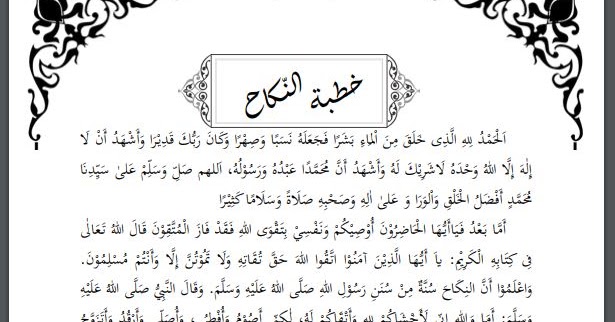 خطبة النّكاح
اَلْحَمْدُ لِلهِ الَّذِى خَلَقَ مِنَ الْمَاءِ بَشَرًا فَجَعَلَهُ نَسَبًا وَصِهْرًا وَكَانَ رَبُّكَ قَدِيْرًا وَأَشْهَدُ أَنْ لَا
إِلٰهَ إِلَّا اللهُ وَحْدَهُ لَاشَرِيْكَ لَهُ وَأَشْهَدُ أَنَّ مُحَمَّدًا عَبْدُهُ وَرَسُوْلُهُ، اَللهم صَلِّ وَسَلِّمْ عَلىٰ سَيِّدِنَا
مُحَمَّدٍ أَفْضَلُ الْخَلْقِ وَالْوَرَا وَ عَلىٰ اٰلِهِ وَصَحْبِهِ صَلَاةً وَسَلَامًا كَثِيْرًا
أَمَّا بَعْدُ فَيَاأَيُّهَا الْحَاضِرُوْنَ أُوْصِيْكُمْ وَنَفْسِيْ بِتَقْوَى اللهِ فَقَدْ فَازَ الْمُتَّقِوْنَ قَالَ اللهُ تَعَالٰى
فِى كِتَابِهِ الْكَرِيْمِ: يآ أَيُّهَا الَّذِيْنَ آمَنُوْا اتَّقُوا اللهَ حَقَّ تُقَاتِهِ وَلَا تَمُوْتُنَّ إِلَّا وَأَنْتُمْ مُسْلِمُوْنَ.
وَاعْلَمُوْا أَنَّ النِكَاحَ سُنَّةٌ مِنْ سُنَنِ رَسُوْلِ اللهِ صَلَّى اللهُ عَلَيْهِ وَسَلَّمَ. وَقَالَ النَّبِيُّ صَلَّى اللهُ عَلَيْهِ
وَسَلَّمَ: أَمَا وَاللهِ إِنِّى لَأَخْشَاكُمْ لِلهِ وَأَتْقَاكُمْ لَهُ، لٰكِنِّى أَصُوْمُ وَأُفْطِرُ، وَأُصَلِّى وَأَرْقُدُ وَأَتَزَوَّجُ